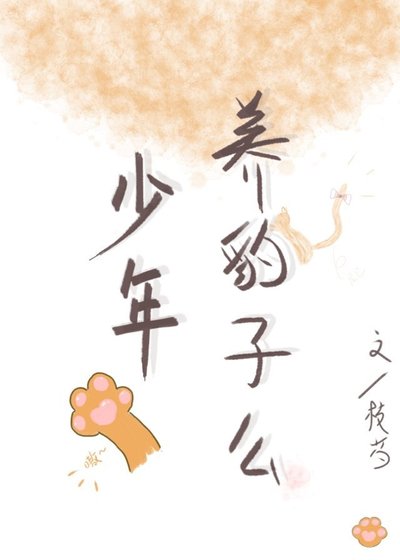 养豹子么
少年
文/枝芍
嗷~